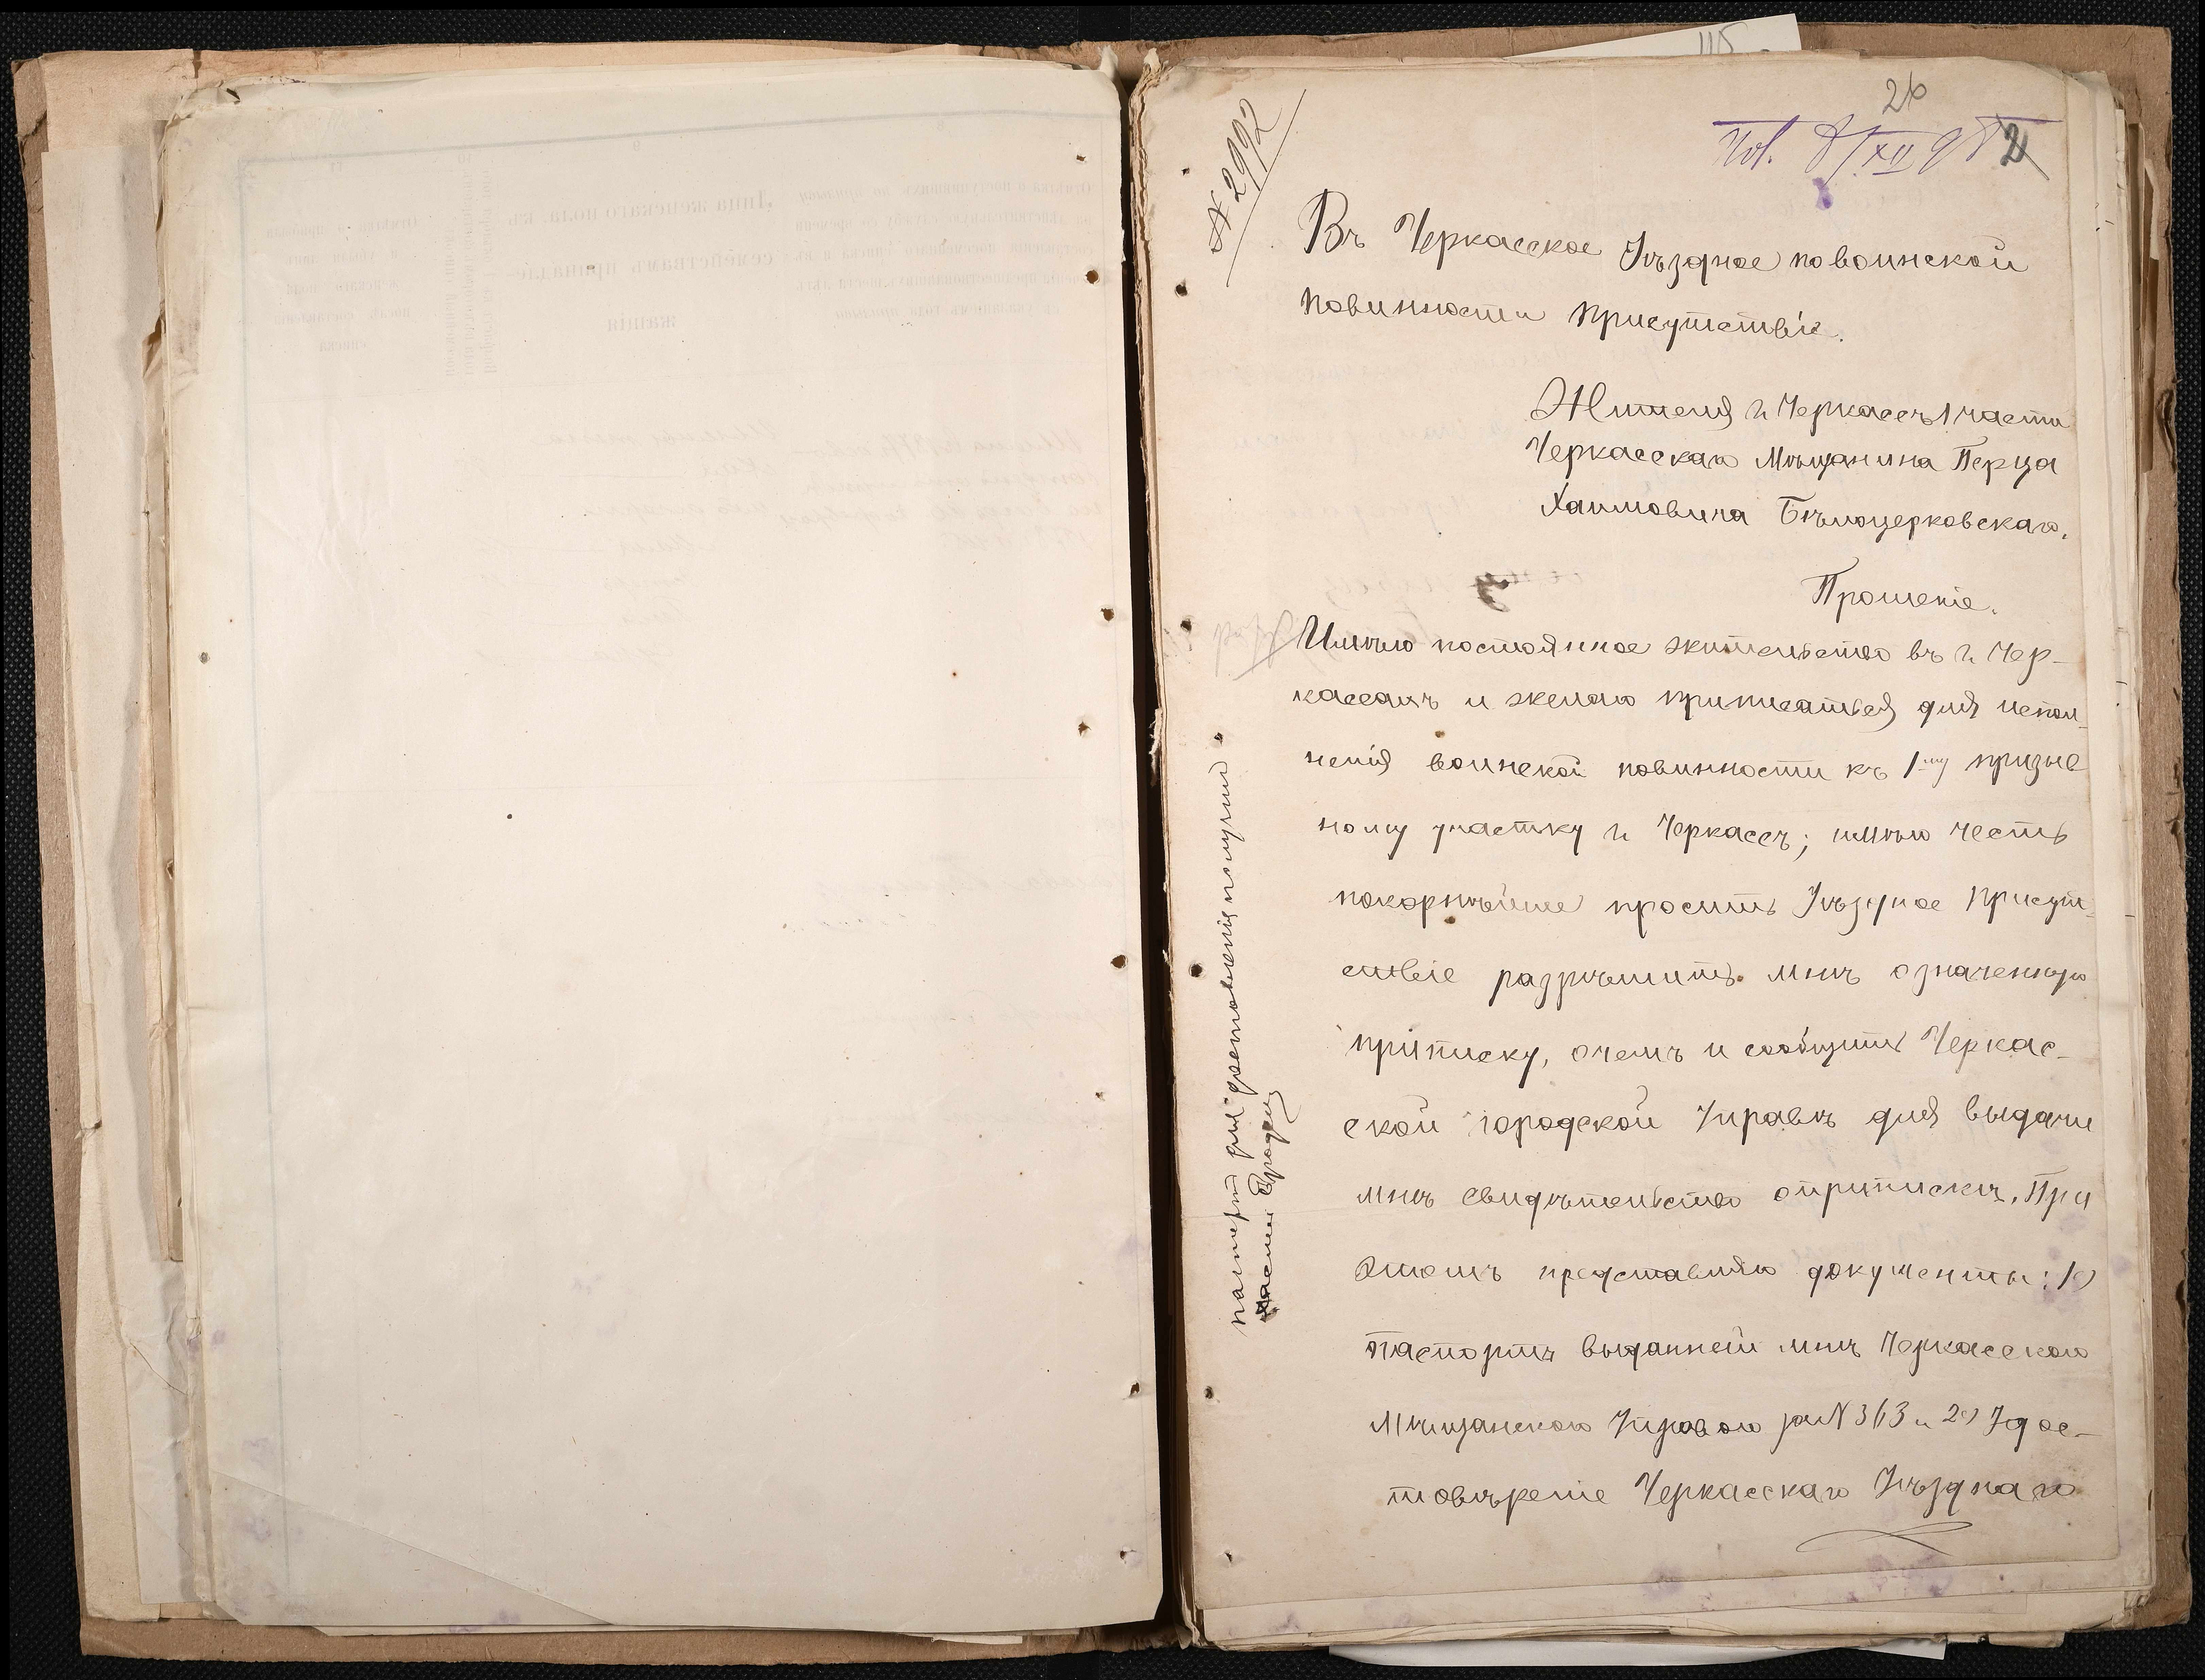 115
26
№ 2992
Пол. 8/XII 98
2
Въ Черкасское Уѣздное по воинской
повинности присутствіе.
Жителя г. Черкассъ 1 части
Черкасскаго Мѣщанина Перца
Хаимовича Бѣлоцерковскаго.
Прошеніе.
Имѣю постоянное жительство въ г. Чер-
кассахъ и желаю приписаться для испол-
ненія воинской повинности къ 1му призыв
ному участку г. Черкассъ; имѣю честь
покорнѣйше просить Уѣздное Присут-
ствіе разрѣшить мнѣ означенную
приписку, о чемъ и сообщить Черкас-
ской городской Управѣ для выдачи
мнѣ свидѣтельство о припискѣ. При
этомъ представляю документы: 1)
паспортъ выданней мнѣ Черкасскою
Мѣщанскою Управою за № 363 и 2) Удос-
товѣреніе Черкасскаго Уѣзднаго
паспортъ для доставленія получилъ